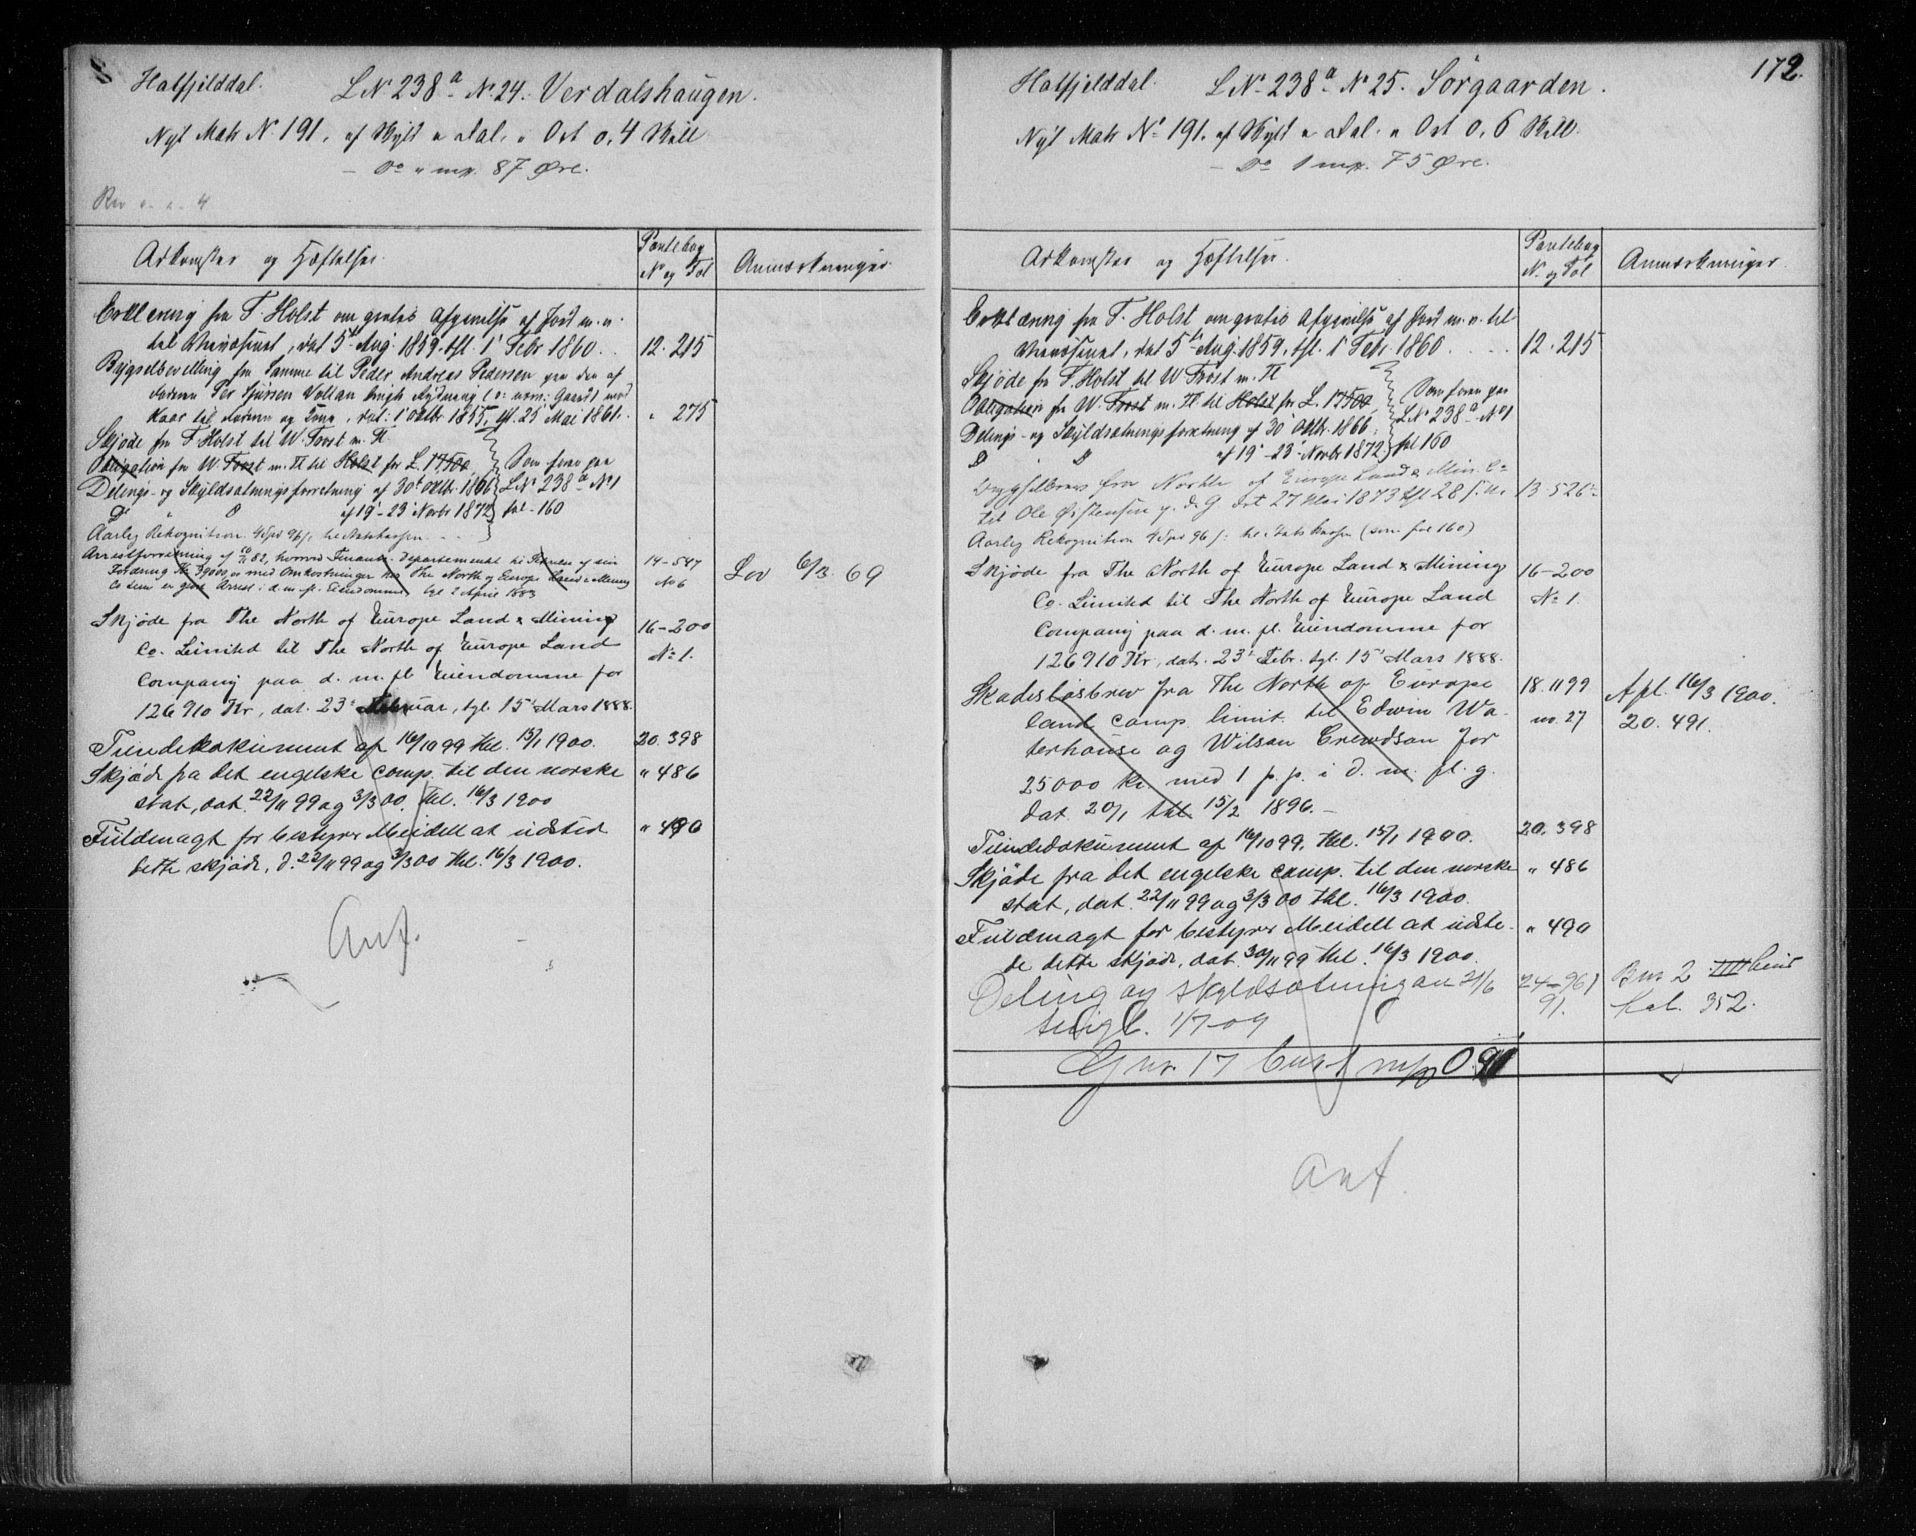 Hatfjelddal. LNo 238a No 24. Verdalshaugen.
Nyt Matr No 191, af Skyld " Dal. " Ort 0, 4 Skill
— Do " mp. 87 Øre.
Rev 4
Adkomster og Hæftelser.
Pantebog
No og Fol
Anmærkninger.
Erklæring fra F. Holst om gratis Afgivelse af Jord m. v.
til Skolevæsenet, dat 5te Aug. 1859. tgl. 1 Febr 1860. 12. 215
Bygselbevilling fra Samme til Peder Andreas Pedersen paa den af
Faderen Per Sjursen Vollan brugte Rydning
Kaar til Faderen og Kone, dat. 1 Oktbr 1855, tgl. 25 Mai 1861. " 275
Skjøde fra F. Holst til W. Frost m. Fl.
Obligation fra W. Frost m. Fl til Holst for L. 17500, Som foran paa
Delings- og Skyldsætningsforretning af 30te Oktbr 1866 LNo 238a No 1
Do " Do af 19-23 Novbr 1872 fol. 160
Aarlig Rekognition 4 Spd 96 s. til Statskassen
Arrestforretning af 20/11 82, hvorved Finants-Departementet til Sikkerhed for sin 14-547
Fordring Kr. 39000, med Omkostninger hos The North of Europe Land & Mining No 6
Co Lim er gjort Arrest i d. m. fl. Eiendomme tgl 2 April 1883
Lov 6/3. 69
Skjøde fra The North of Europe Land & Mining 16-200
Co. Limited til The North of Europe Land No 1.
Company paa d. m. fl Eiendomme for
126910 Kr, dat. 23' Februar, tgl. 15' Mars 1888.
Tiendedokument af 16/10 99 thl. 15/1 1900. 20. 398
Skjøde fra det engelske comp. til den norske " 486
stat, dat. 22/11 99 og 3/3 00. thl. 16/3 1900
Fuldmagt for bestyrer Meidell at udsted " 490
dette skjøde, d. 22/11 99 og 3/3 00 thl. 16/3 1900.
Anf.
172.
Hatfjelddal. LNo 238a No 25. Sörgaarden.
Nyt Matr No 191. af Skyld " Dal. " Ort 0, 6 Skill.
— Do 1 mp. 75 Øre.
Adkomster og Hæftelser.
Pantebog
No og Fol
Anmærkninger.
Erklæring fra F. Holst om gratis Afgivelse af Jord m. v. til
Skolevæsenet, dat 5te Aug. 1859, tgl. 1 Febr 1860 12. 215
Skjøde fra F. Holst til W Frost m. Fl
Obligation fra W. Frost m. Fl til Holst for L. 17500, Som foran paa
Delings- og Skyldsætningsforretning af 30 Oktbr. 1866. LNo 238a No 1
Do Do af 19-23 Novbr 1872 fol 160
Bygselbrev fra North of Europe Land & Min. Co
til Ole Østensen dat 27 Mai 1873 tgl 28 s. M. 13-526
Aarlig Rekognition 4 Spd 96 s: til Statskassen (som fol 160)
Skjøde fra The North of Europe Land & Mining 16-200
Co. Limited til The North of Europe Land No 1.
Company paa d. m. fl. Eiendomme for
126910 Kr, dat. 23' Febr. tgl. 15' Mars 1888.
Skadesløsbrev fra The North of Europe 18. 1199 Afl. 16/3 1900.
land comp. limit. til Edwin Wa- no. 27 20. 491.
terhouse og Wilson Crewdson for
25000 kr. med 1 p. p. i d. m. fl. g.
dat 20/1 thl 15/2 1896. —
Tiendedokument af 16/10 99, thl. 15/1 1900. 20. 398
Skjøde fra det engelske comp. til den norske " 486
stat, dat. 22/11 99 og 3/3 00 thl. 16/3 1900.
Fuldmagt for bestyrer Meidell at udste- " 490
de dette skjøde, dat. 30/11 99 thl. 16/3 1900.
Deling og skyldsætning av 21/6 24-961 Bnr 2
tingl. 1/7-09 91. fol. 352.
Gnr. 17 bnr 1 m/p 0.91
Anf.